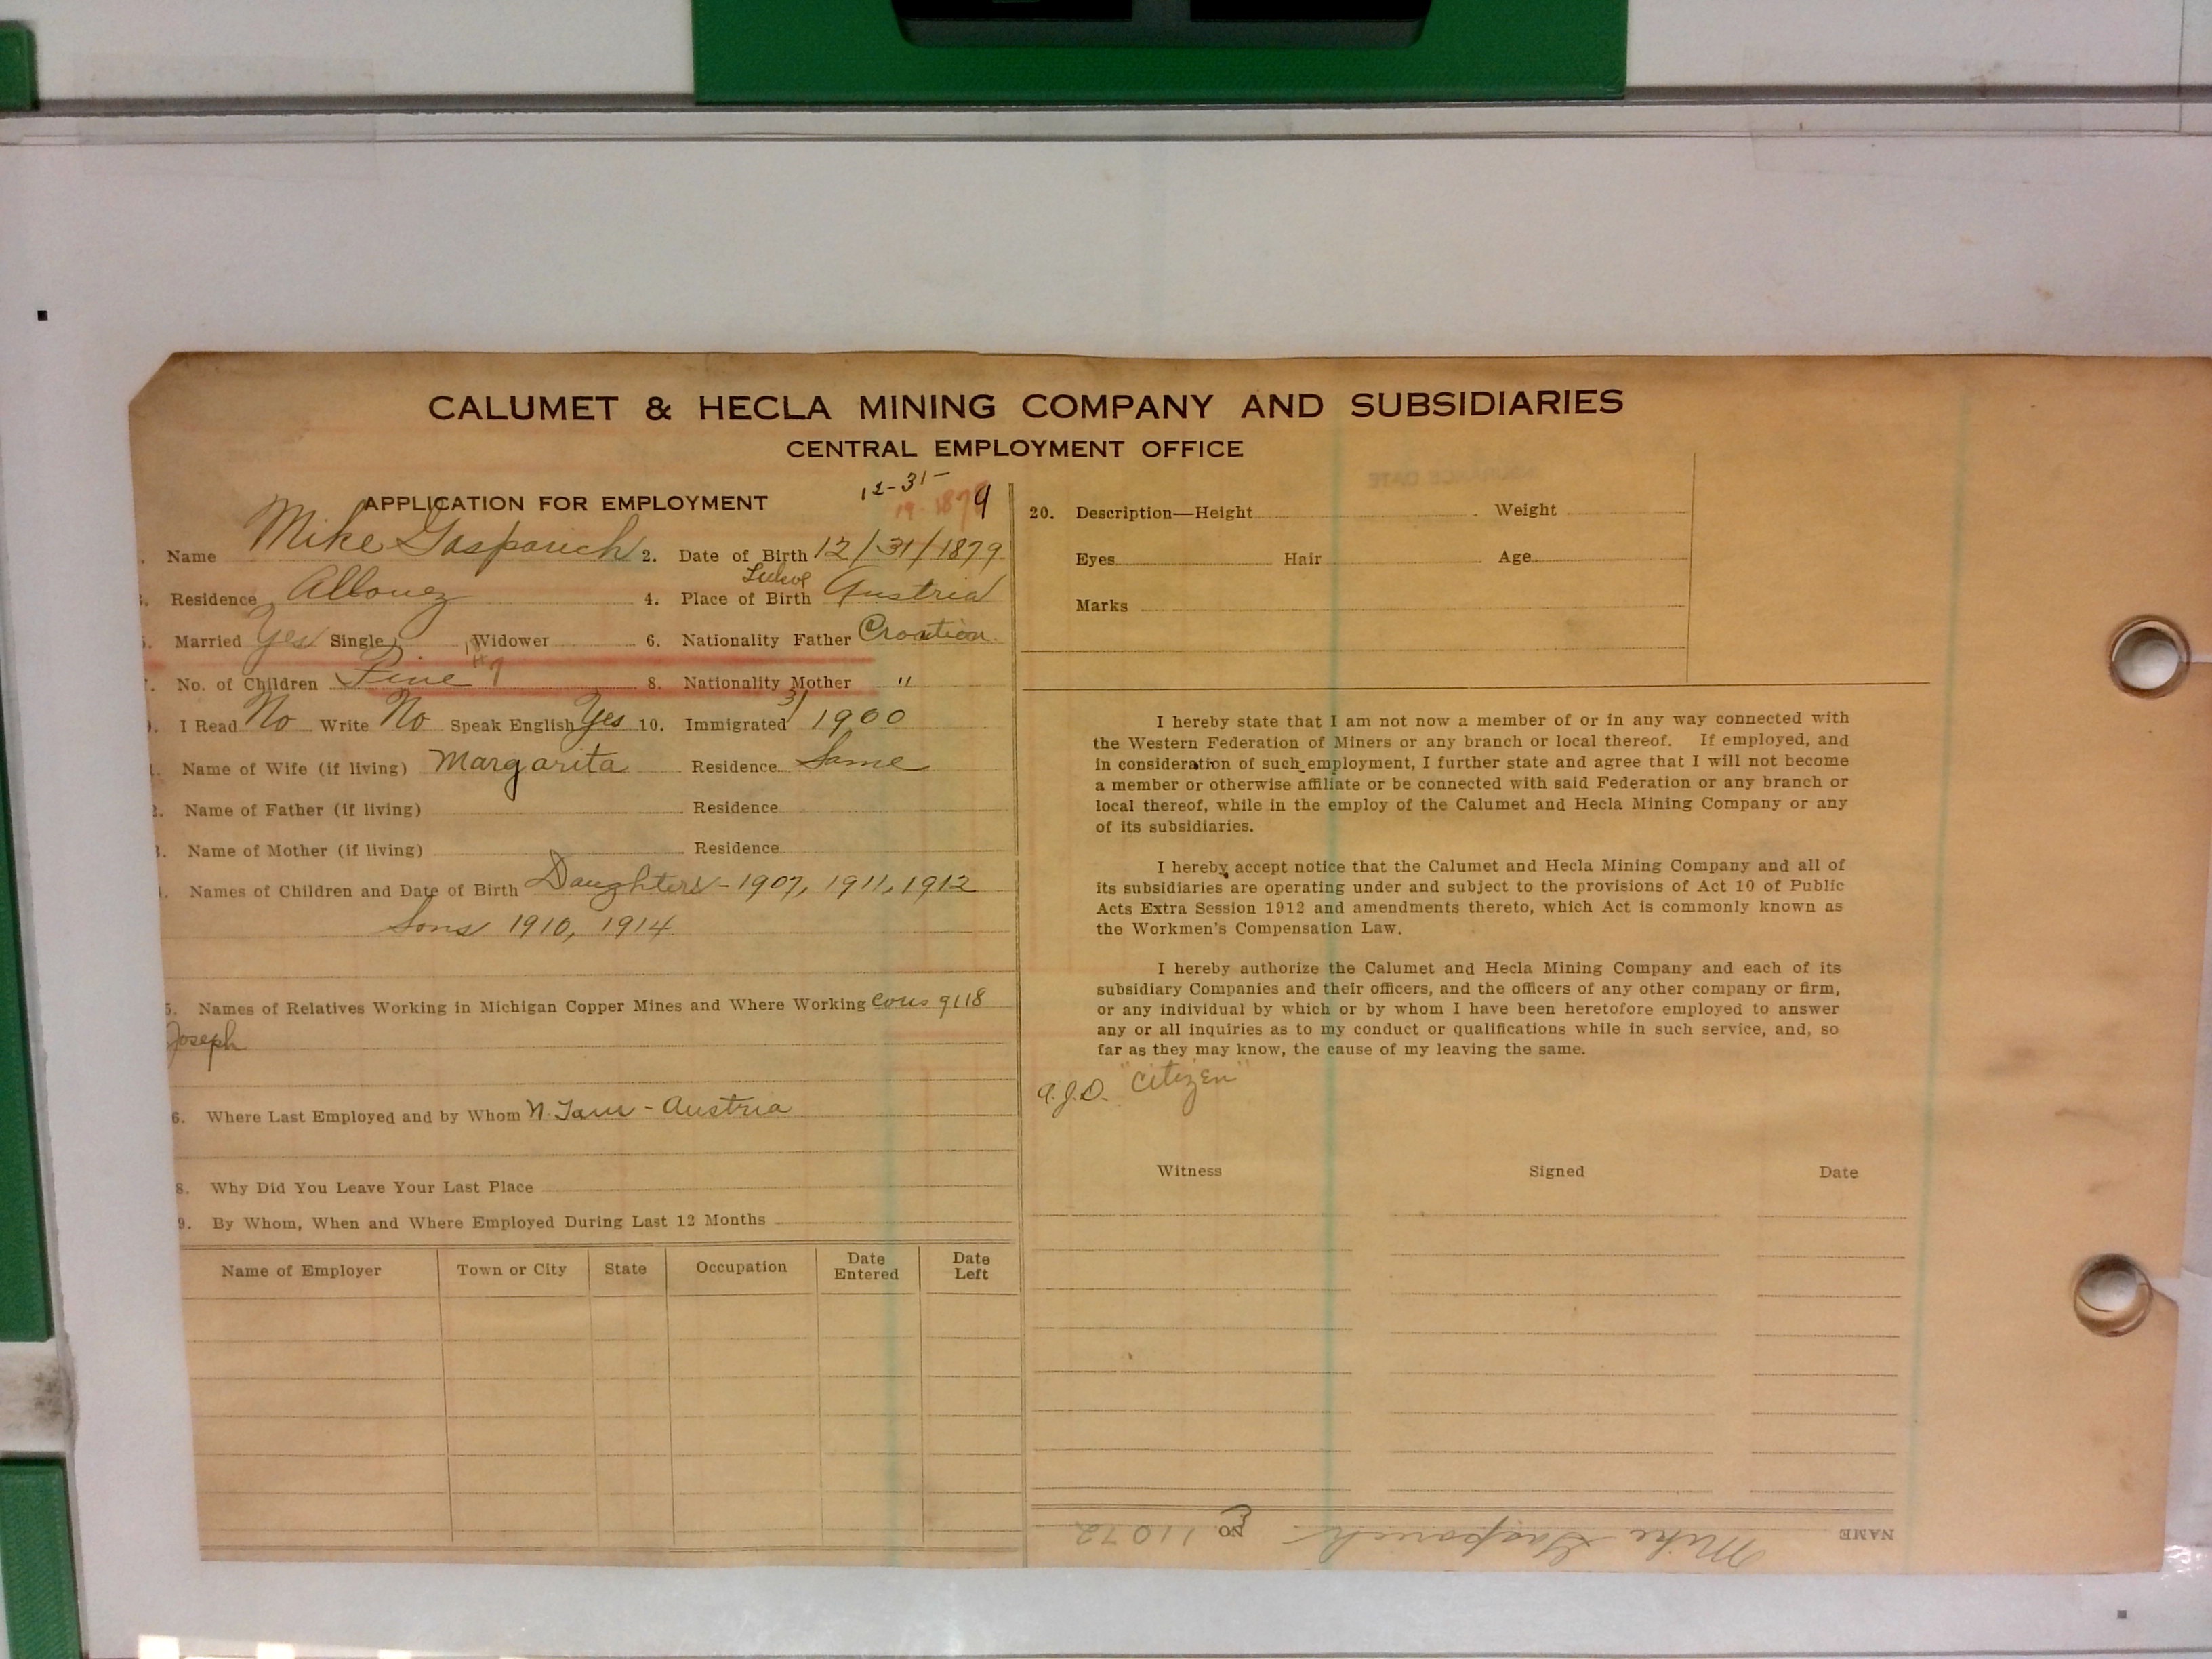 CALUMET & HECLA MINING COMPANY AND SUBSIDIARIES
CENTRAL EMPLOYMENT OFFICE
12-31-
APPLICATION FOR EMPLOYMENT 9
Name Mike Gasparich 2. Date of Birth 12/31/1879
Residence Allouez 4. Place of Birth Austria
Married Yes Single Widower 6. Nationality Father Croatian
No. of Children Five 8. Nationality Mother "
I Read No Write No Speak English Yes 10. Immigrated 1900
Name of Wife (if living) Margarita Residence Same
Name of Father (if living) Residence
Name of Mother (if living) Residence
Names of Children and Date of Birth Daughters - 1907, 1911, 1912
Sons 1910, 1914
5. Names of Relatives Working in Michigan Copper Mines and Where Working Cous 9118
Joseph
6. Where Last Employed and by Whom - Austria
8. Why Did You Leave Your Last Place
9. By Whom, When and Where Employed During Last 12 Months
Name of Employer Town or City State Occupation Date Entered Date Left
20. Description—Height Weight
Eyes Hair Age
Marks
I hereby state that I am not now a member of or in any way connected with
the Western Federation of Miners or any branch or local thereof. If employed, and
in consideration of such employment, I further state and agree that I will not become
a member or otherwise affiliate or be connected with said Federation or any branch or
local thereof, while in the employ of the Calumet and Hecla Mining Company or any
of its subsidiaries.
I hereby accept notice that the Calumet and Hecla Mining Company and all of
its subsidiaries are operating under and subject to the provisions of Act 10 of Public
Acts Extra Session 1912 and amendments thereto, which Act is commonly known as
the Workmen's Compensation Law.
I hereby authorize the Calumet and Hecla Mining Company and each of its
subsidiary Companies and their officers, and the officers of any other company or firm,
or any individual by which or by whom I have been heretofore employed to answer
any or all inquiries as to my conduct or qualifications while in such service, and, so
far as they may know, the cause of my leaving the same.
a.J.D. "Citizen"
Witness Signed Date
NAME Mike Gasparich NO 11072